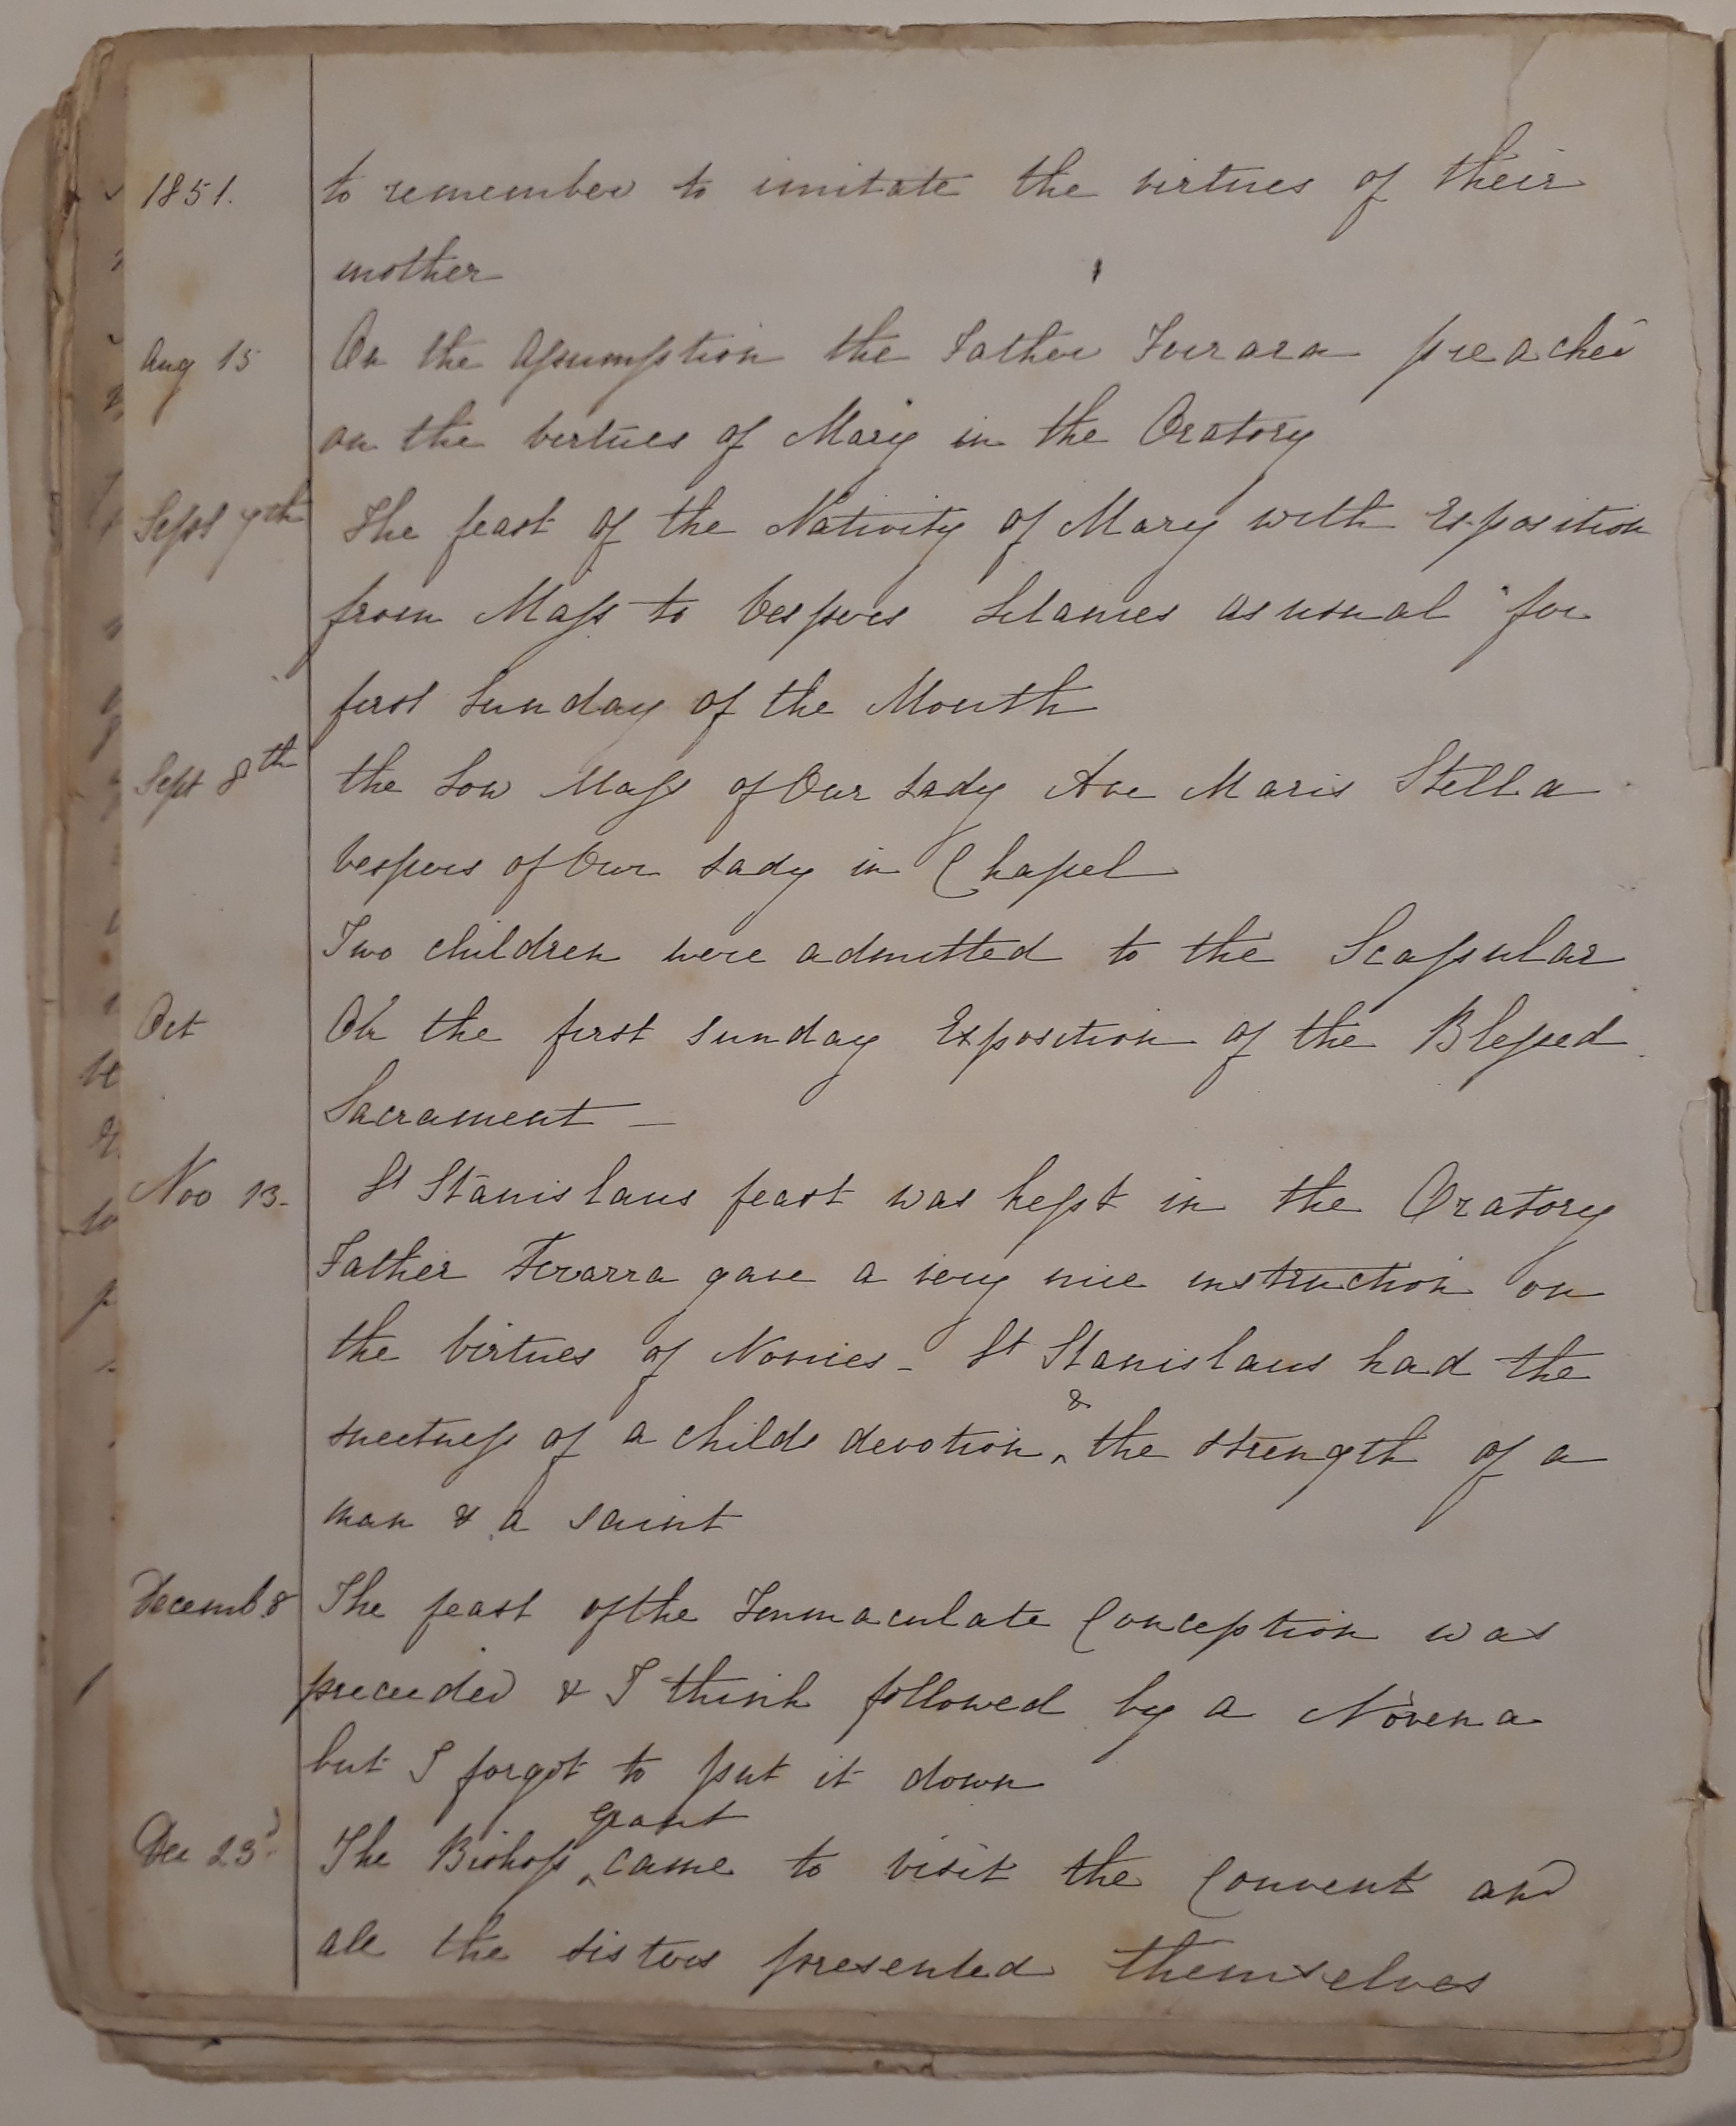 1851. to remember to imitate the virtues of their
mother
Aug 15 On the Assumption the Father Ferrara preached
on the virtues of Mary in the Oratory
Sept 7th The feast of the Nativity of Mary with Exposition
from Mass to Vespers Litanies as usual for
first Sunday of the Month
Sept 8th the Low Mass of Our Lady Ave Maris Stella
Vespers of Our Lady in Chapel
Two children were admitted to the Scapular
Oct On the first Sunday Exposition of the Blessed
Sacrament —
Nov 13- St Stanislaus feast was kept in the Oratory
Father Ferarra gave a very nice instruction on
the virtues of Novices - St Stanislaus had the
sweetness of a childs devotion & the strength of a
man & a saint
Decemb 8 The feast of the Immaculate Conception was
preceeded & I think followed by a Novena
but I forgot to put it down
Dec 23d The Bishop Grant came to visit the Convent and
all the sisters presented themselves